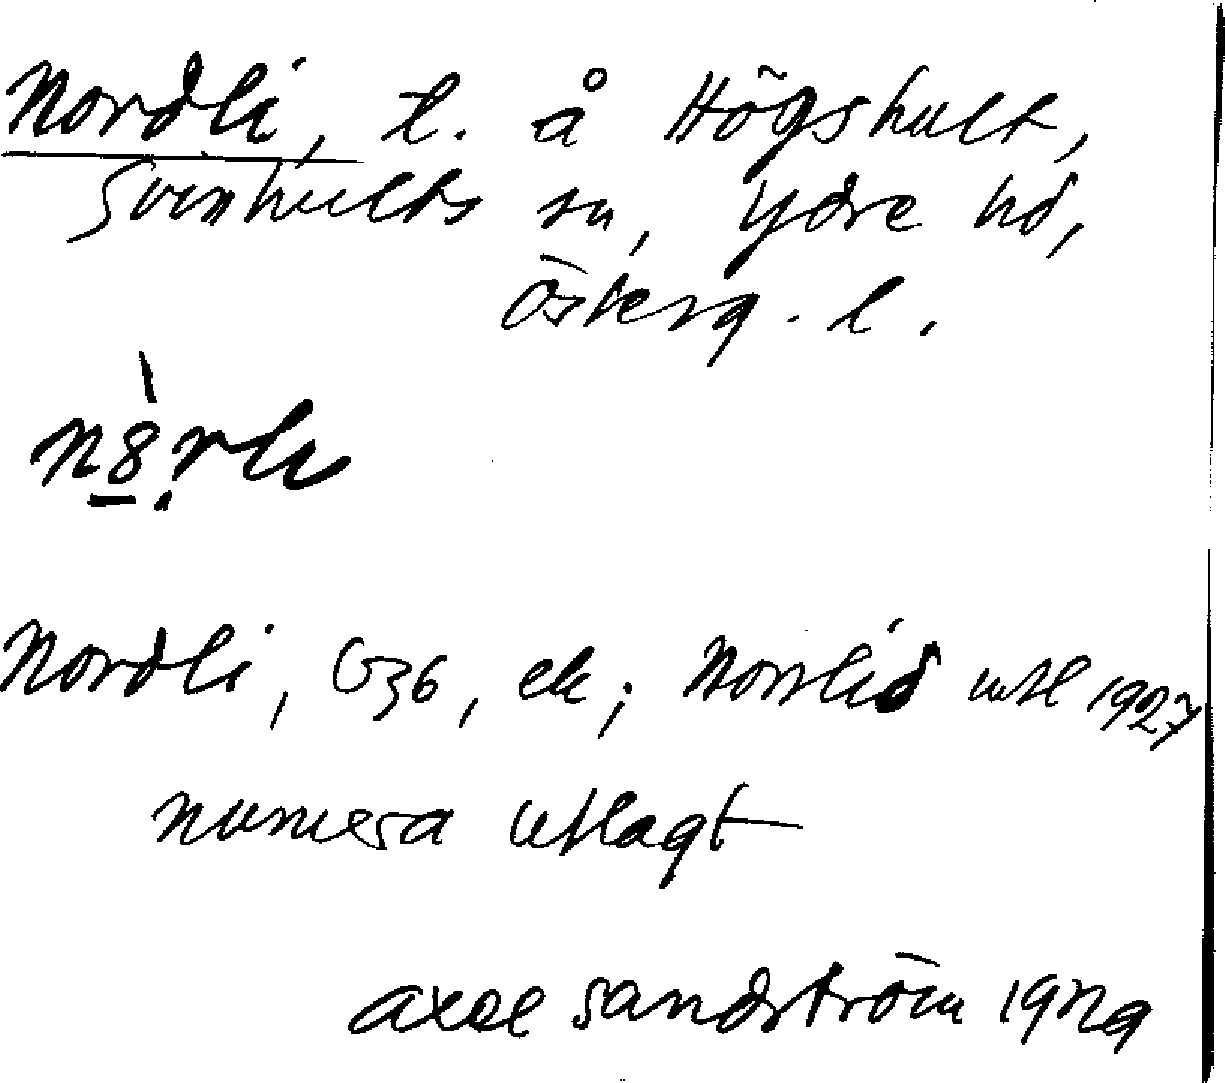 Nordli, t. å Högshult,
Svinhults sn, Ydre hd,
Österg. l.
Nordli, G36, ek; Norrlid utl 1927
numera utlagt
Axel Sandström 1929